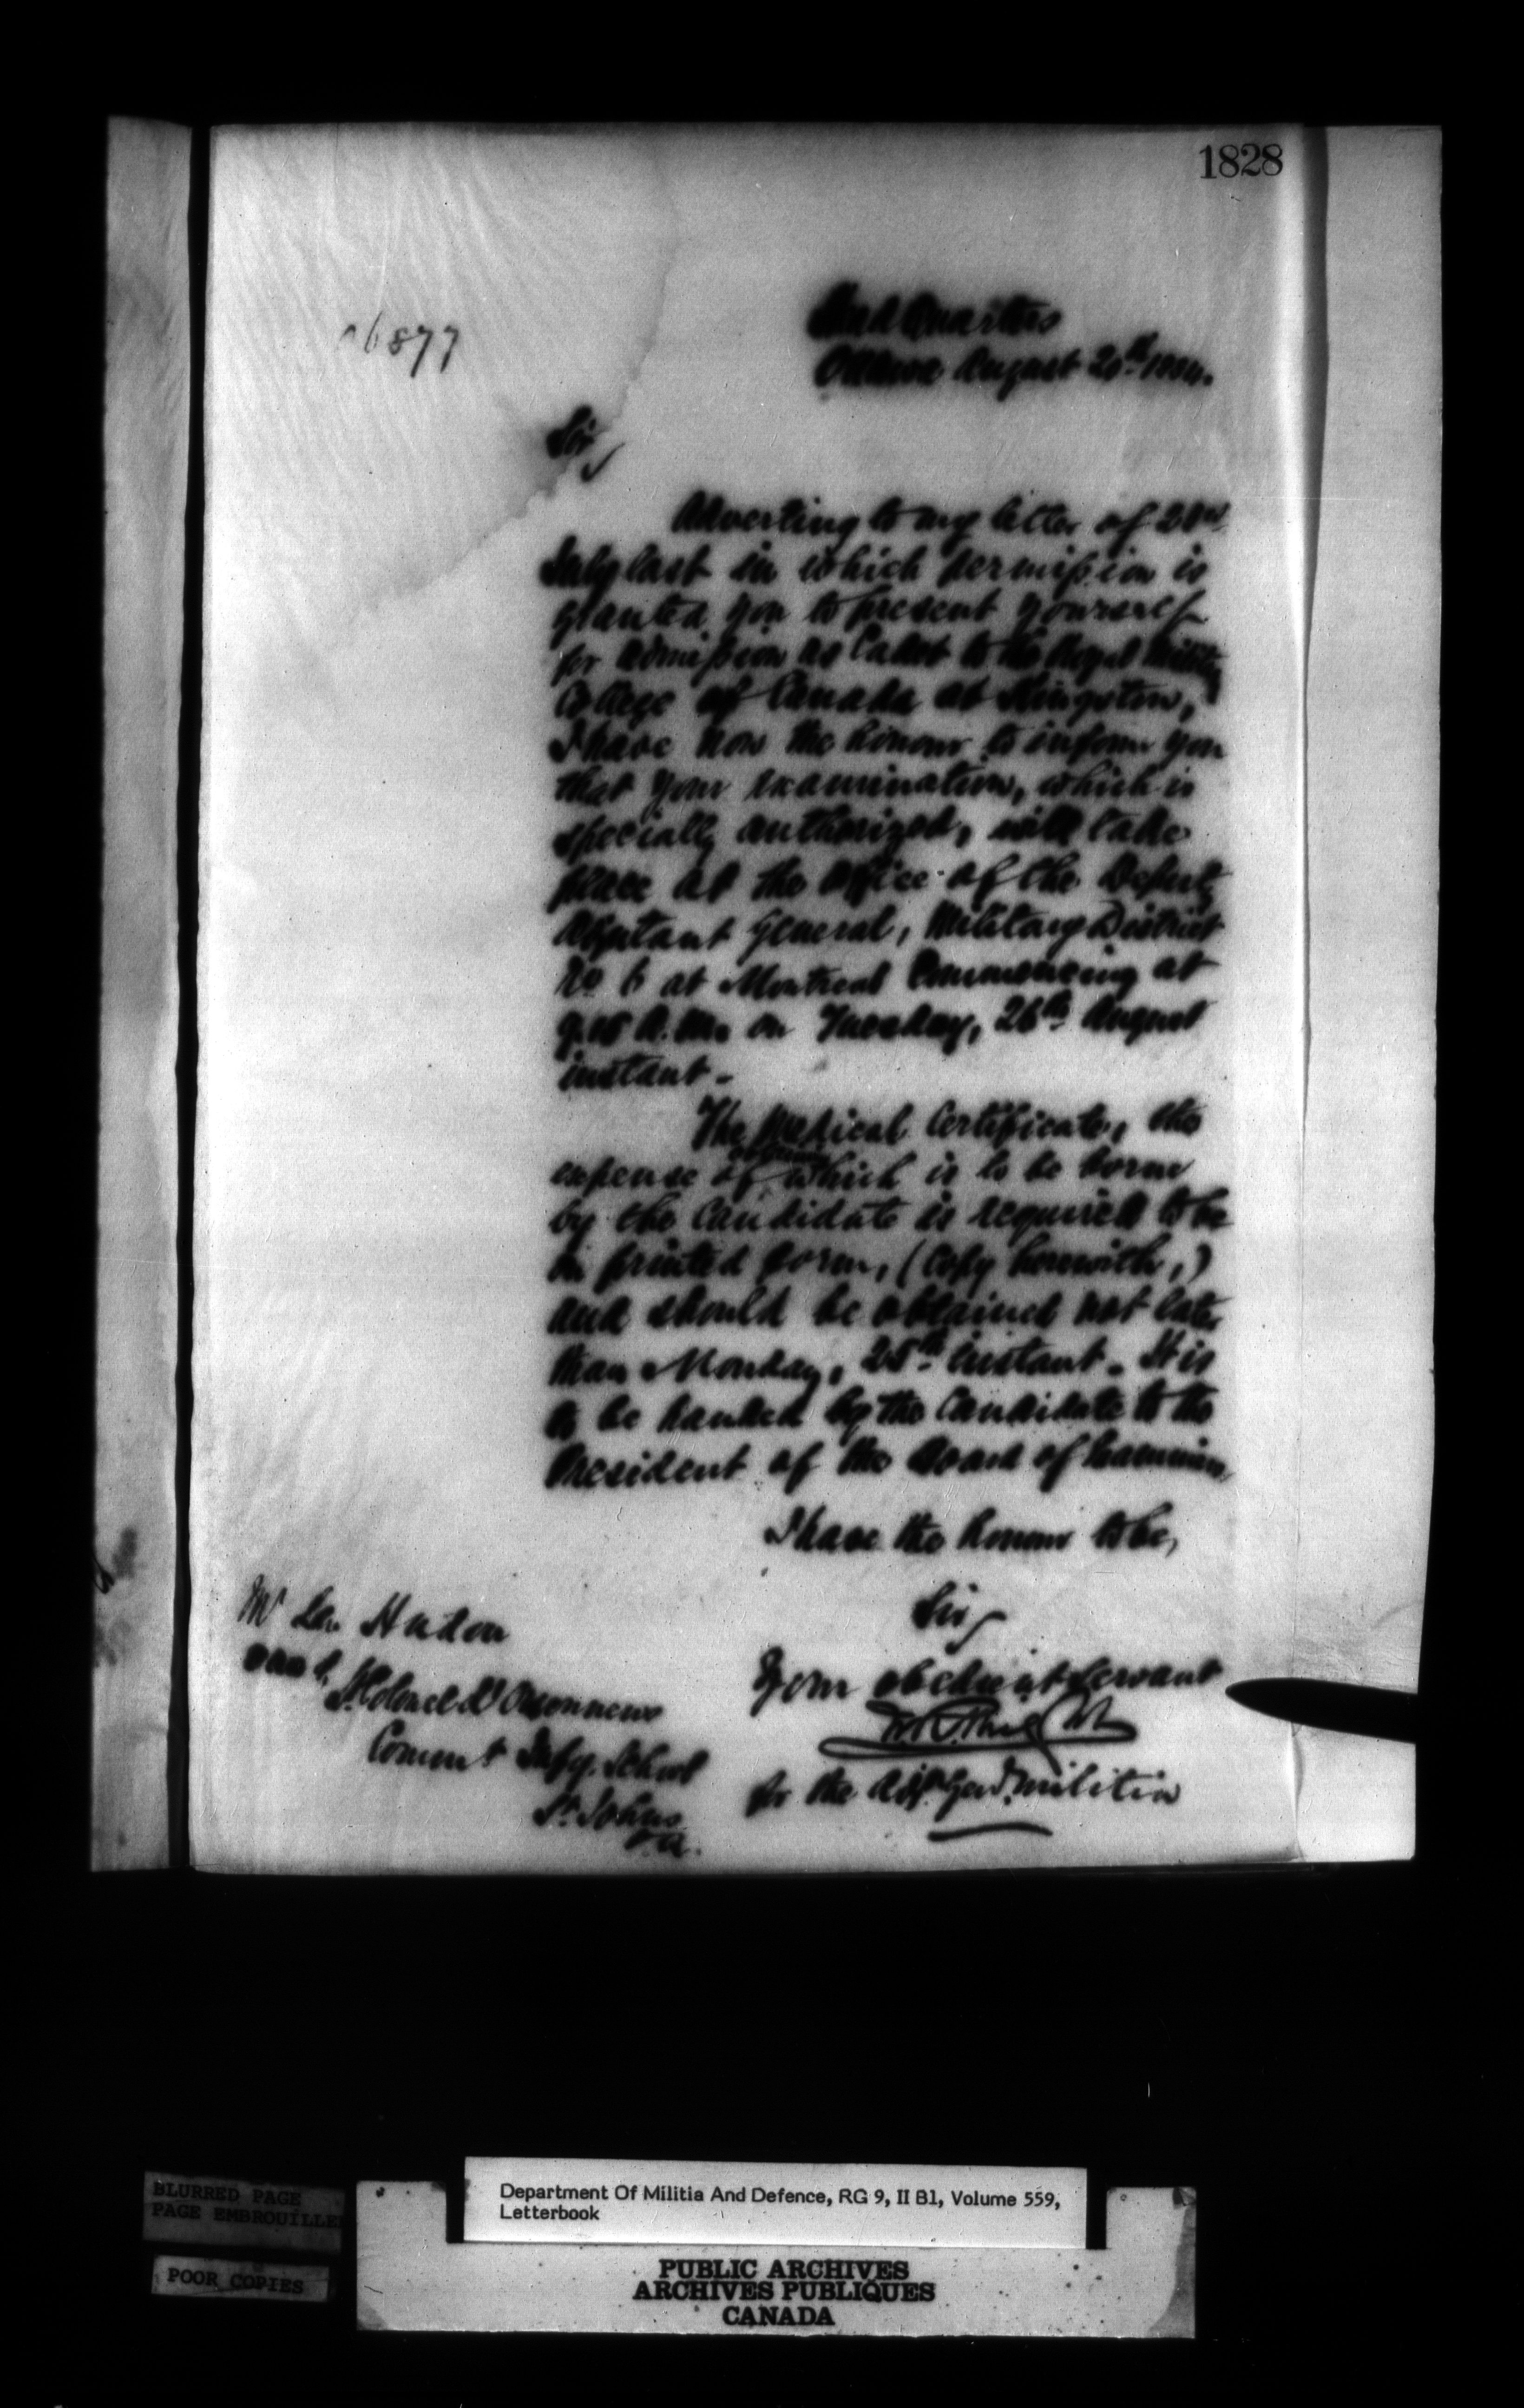 1828
Head Quarters
Ottawa August 20th 1884.
Sir,
Adverting to my letter of
July last in which permission is
granted you to present yourself
for admission as Cadet to the Royal Military
College of Canada at Kingston,
I have now the honour to inform you
that your examination, which is
specially authorized, will take
place at the office of the Deputy
Adjutant General, Military District
No 6 at Montreal Commencing at
A.M. on Tuesday, 26th August
instant.
The Medical Certificate, the
expense of which is to be borne
by the Candidate is required to be
on printed form, (Copy herewith,)
and should be obtained not later
than Monday, 25th instant. It is
to be handed by the Candidate to the
President of the Board of
I have the honour to be,
Sir,
Your obedient Servant
for the Adjt. Genl. Militia
Mr Hudon
Comm't Infy. School
St. Johns
P.Q.
BLURRED PAGE
PAGE EMBROUILLEE
POOR COPIES
Department Of Militia And Defence, RG 9, II B1, Volume 559,
Letterbook
PUBLIC ARCHIVES
ARCHIVES PUBLIQUES
CANADA